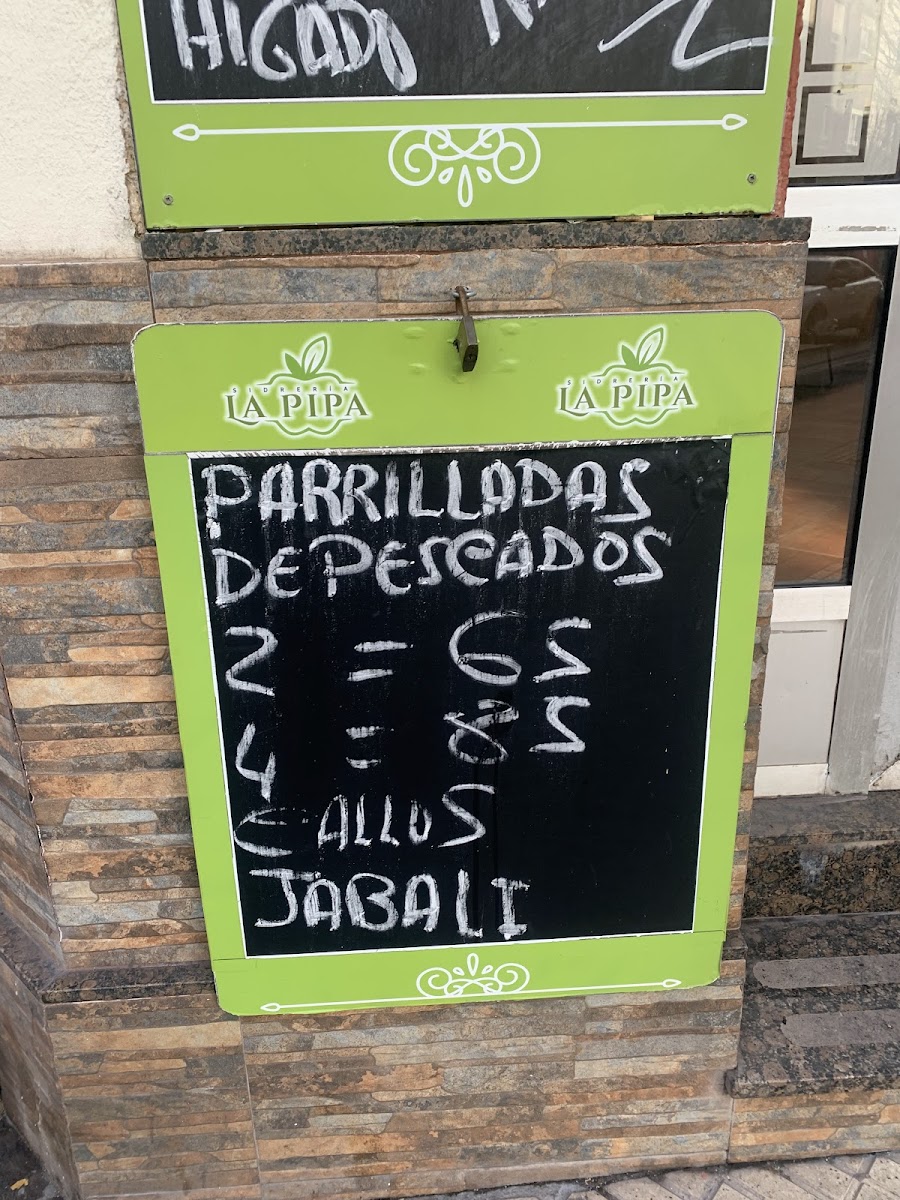 HIGADO
SIDRERÍA
LA PIPA
SIDRERÍA
LA PIPA
PARRILLADAS
DE PESCADOS
2 = 65
4 = 85
CALLOS
JABALI